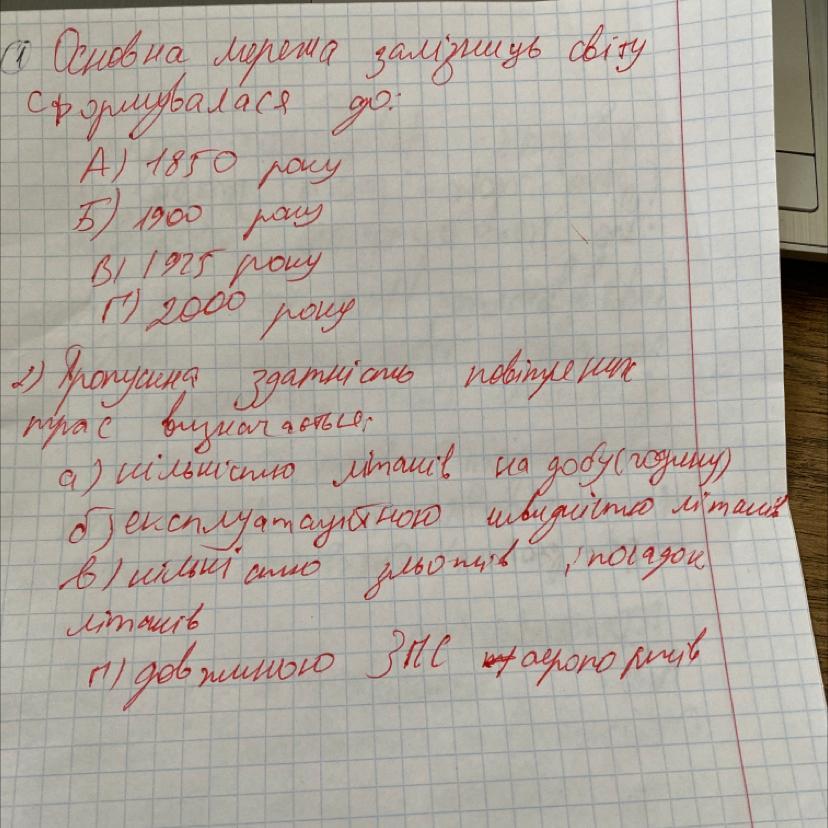 1) Основна мережа залізниць світу
сформувалася до:
А) 1850 року
Б) 1900 року
В) 1925 року
Г) 2000 року
2) Пропускна здатність повітряних
трас визначається:
а) кількістю літаків на добу (годину)
б) експлуатаційною швидкістю літаків
в) кількістю зльотів і посадок
літаків
г) довжиною ЗПС аеропортів